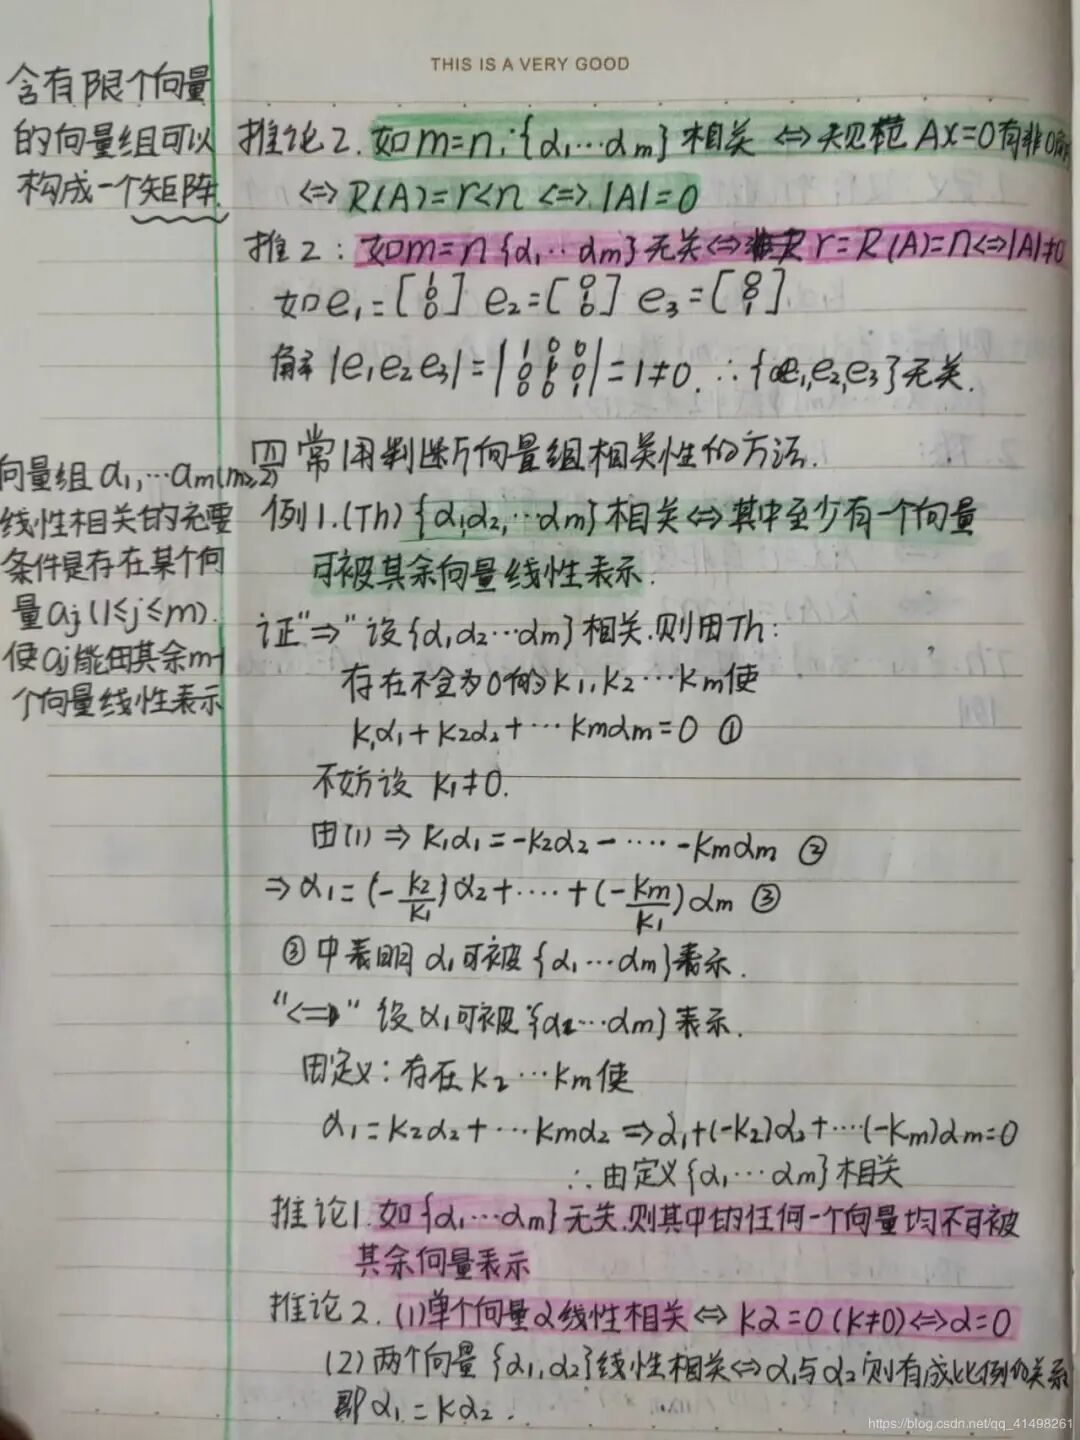 THIS IS A VERY GOOD
含有限个向量
的向量组可以
构成一个矩阵.
推论2. 如m=n, {α₁…αm} 相关 ⟺ AX=0有非0解
⟺ R(A)=r<n ⟺ |A|=0
推2: 如m=n {α₁…αm} 无关⟺ r=R(A)=n⟺|A|≠0
如e₁=[1 0 0] e₂=[0 1 0] e₃=[0 0 1]
解 |e₁e₂e₃|=|1 0 0 0 1 0 0 0 1|=1≠0. ∴{e₁,e₂,e₃}无关.
四 常用判断向量组相关性的方法.
向量组 a₁,…am(m≥2)
线性相关的充要
条件是存在某个向
量aj(1≤j≤m).
使aj能由其余m-1
个向量线性表示
例1.(Th) {α₁α₂,…αm}相关⟺其中至少有一个向量
可被其余向量线性表示.
证"⇒" 设{α₁α₂…αm}相关.则由Th:
存在不全为0的k₁,k₂…km使
k₁α₁+k₂α₂+…kmαm=0 ①
不妨设 k₁≠0.
由(1) ⇒ k₁α₁=-k₂α₂-……-kmαm ②
⇒ α₁=(-k₂/k₁)α₂+……+(-km/k₁)αm ③
③中表明 α₁可被{α₁…αm}表示.
"⟸" 设α₁可被{α₂…αm}表示.
由定义: 存在k₂…km使
α₁=k₂α₂+…kmα₂ ⇒α₁+(-k₂)α₂+…(-km)αm=0
∴由定义{α₁…αm}相关
推论1.如{α₁…αm}无关.则其中的任何一个向量均不可被
其余向量表示
推论2. (1)单个向量α线性相关⟺kα=0(k≠0)⟺α=0
(2)两个向量{α₁,α₂}线性相关⟺α₁与α₂则有成比例的关系
即α₁=kα₂.
https://blog.csdn.net/qq_41498261